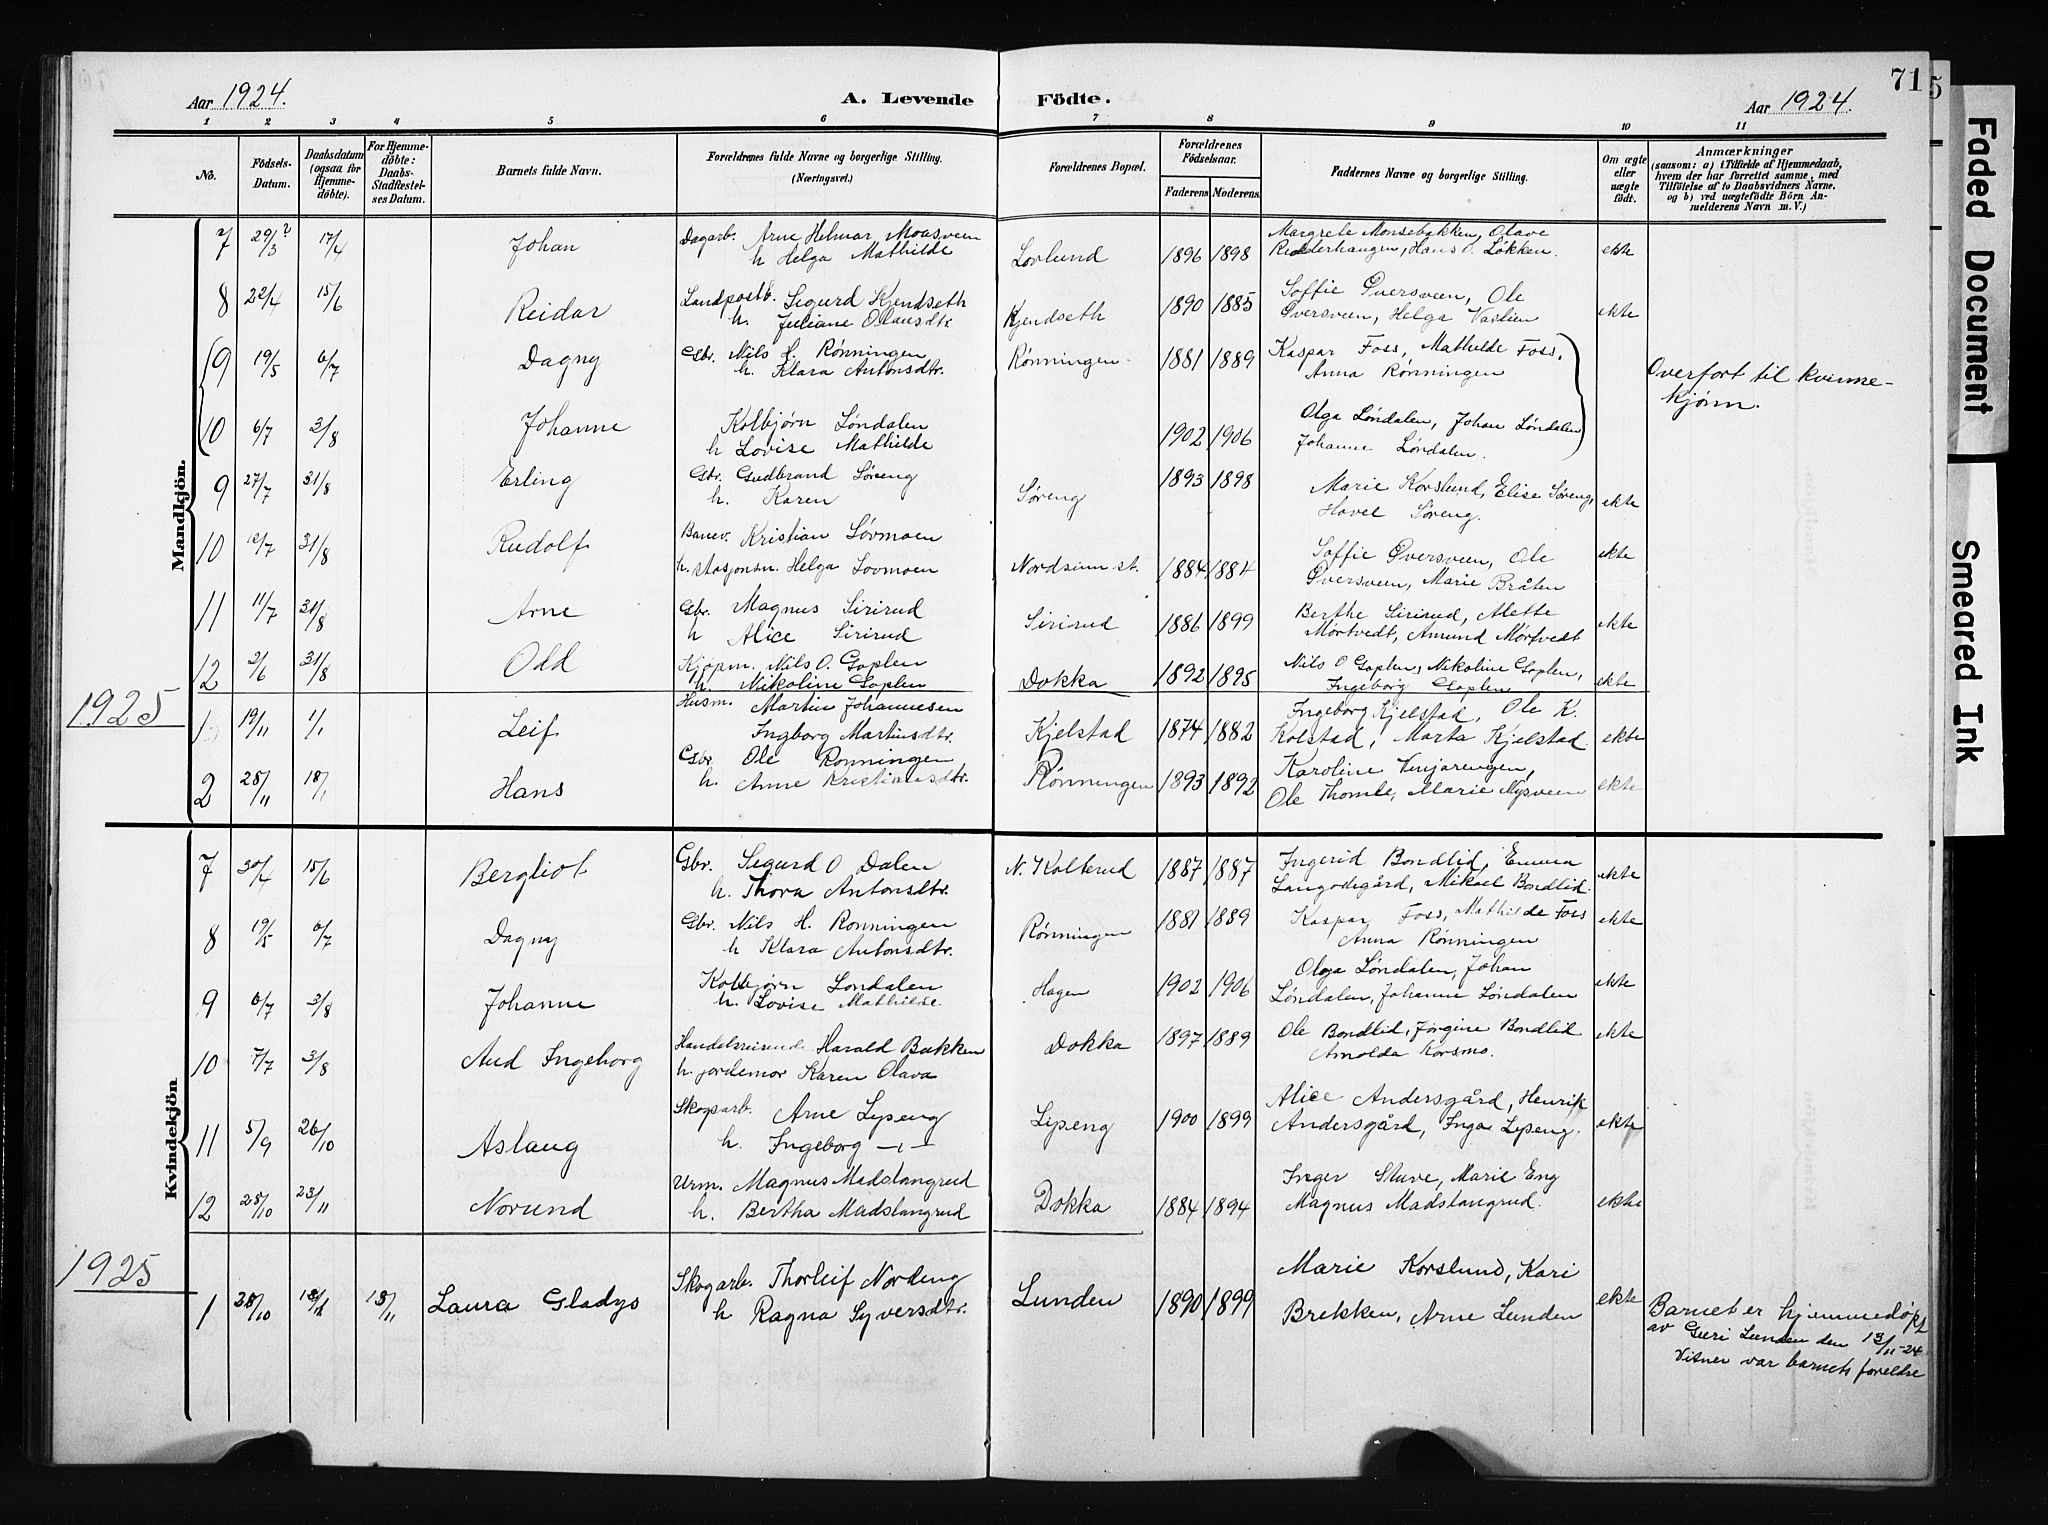 71 5
Aar 1924. A. Levende Födte. Aar 1924.
1 2 3 4 5 6 7 8 9 10 11
No. Födsels-Datum. Daabsdatum (ogsaa for Hjemme-döbte). For Hjemme-döbte: Daabs-Stadfæstel-ses Datum. Barnets fulde Navn. Forældrenes fulde Navne og borgerlige Stilling. (Næringsvei.) Forældrenes Bopæl. Forældrenes Födselsaar. Faderens Moderens Faddernes Navne og borgerlige Stilling. Om ægte eller uægte födt. Anmærkninger (saasom: a) i Tilfælde af Hjemmedaab, hvem der har forrettet samme, med Tilföielse af to Daabsvidners Navne, og b) ved uægtefödte Börn An-melderens Navn m. V.)
Mandkjön.
7 29/3 ? 17/4 Johan Dagarb. Arne Helmar Moasveen Lorlund 1896 1898 Margrete Monsebakken, Olave ekte
h Helga Mathilde Redderhaugen, Hans O. Løkken.
8 22/4 15/6 Reidar Landpostb. Sigurd Kjendseth Kjendseth 1890 1885 Soffie Øversveen, Ole ekte
h. Juliane Olausdtr Øversveen, Helga Vaslien
9 19/5 6/7 Dagny Gbr. Nils H. Rønningen Rønningen 1881 1889 Kaspar Foss, Mathilde Foss, Overfort til kvinne-
h. Klara Antonsdtr. Anna Rønningen kjønn.
10 6/7 3/8 Johanne Kolbjørn Løndalen 1902 1906 Olga Løndalen, Johan Løndalen
h Lovise Mathilde Johanne Løndalen.
9 27/7 31/8 Erling Gbr. Gudbrand Søreng Søreng 1893 1898 Marie Korslund, Elise Søreng, ekte
h. Karen Havel Søreng.
10 12/7 31/8 Rudolf Banev. Kristian Løvmoen Nordsinn st. 1884 1884 Soffie Øversveen, Ole ekte
h. stasjonsm. Helga Løvmoen Øversveen, Marie Bråten
11 11/7 31/8 Arne Gbr. Magnus Siririud Siririud 1886 1899 Berthe Siririud, Mette ekte
h Alice Siririud Mørtvedt, Amund Mørtvedt
12 2/6 31/8 Odd Kjøpm. Nils O. Goplen Dokka 1892 1895 Nils O Goplen, Nikoline Goplen, ekte
h. Nikoline Goplen Ingeborg Goplen
1925
1 19/11 1/1 Leif Husm. Martin Johannesen Kjelstad 1874 1882 Ingeborg Kjelstad, Ole K. ekte
Ingborg Martinsdtr. Kolstad, Marta Kjelstad.
2 28/11 18/1 Hans Gbr. Ole Rønningen Rønningen 1893 1892 Karoline Vinjarengen, ekte
h. Anne Kristiansdtr. Ole Thomle, Marie Nysveen
Kvindekjön
7 30/4 15/6 Bergliot Gbr. Sigurd O Dalen N. Kolterud 1887 1887 Ingerid Bondlid, Emma ekte
h. Thora Antonsdtr. Langødegård, Mikael Bondlid.
8 19/5 6/7 Dagny Gbr. Nils H. Rønningen Rønningen 1881 1889 Kaspar Foss, Mathilde Foss ekte
h Klara Antonsdtr. Anna Rønningen
9 6/7 3/8 Johanne Kolbjørn Londalen Hagen 1902 1906 Olga Løndalen, Johan ekte
h. Lovise Mathilde Løndalen, Johanne Løndalen
10 7/7 3/8 Aud Ingeborg Handelsreisende Harald Bakken Dokka 1897 1889 Ole Bondlid, Jørgine Bondlid ekte
h. jordemor Karen Olava Arnolda Korsmo.
11 5/9 26/10 Aslaug Skogarb. Arne Lyseng Lyseng 1900 1899 Alice Andersgård, Henrik ekte
h. Ingeborg -"- Andersgård, Inga Lyseng.
12 28/10 23/11 Norund Urm. Magnus Madslangrud Dokka 1884 1894 Inger Stuve, Marie Eng ekte
h. Bertha Madslangrud Magnus Madslangrud.
1925
1 28/10 18/1 13/11 Laura Gladys Skogarb. Thorleif Nordeng Lunden 1890 1899 Marie Korslund, Kari ekte
h Ragna Syversdtr. Brekken, Arne Lunden Barnet er hjemmedøpt
av Guri Lunden den 13/11-24
Vitner var barnets foreldre
Faded Document
Smeared Ink